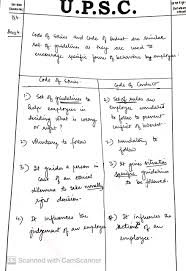 U.P.S.C.
Code of Ethics and Code of Conduct are similar
set of guidelines as they are used to
encourage specific forms of behaviour by employee
Code of Ethics
Code of Conduct
1) Set of guidelines to
help employees in
deciding what is wrong
or right?
1) Set of rules an
employee considered
to follow to prevent
2) Voluntary to follow
2) Mandatory to
follow
3) It guides a person in
case of an ethical
dilemma to take morally
right decision.
3) It gives
specific guidelines
to be followed.
4) It influences the
judgement of an employee
4) It influences the
actions of an
employee.
Scanned with CamScanner